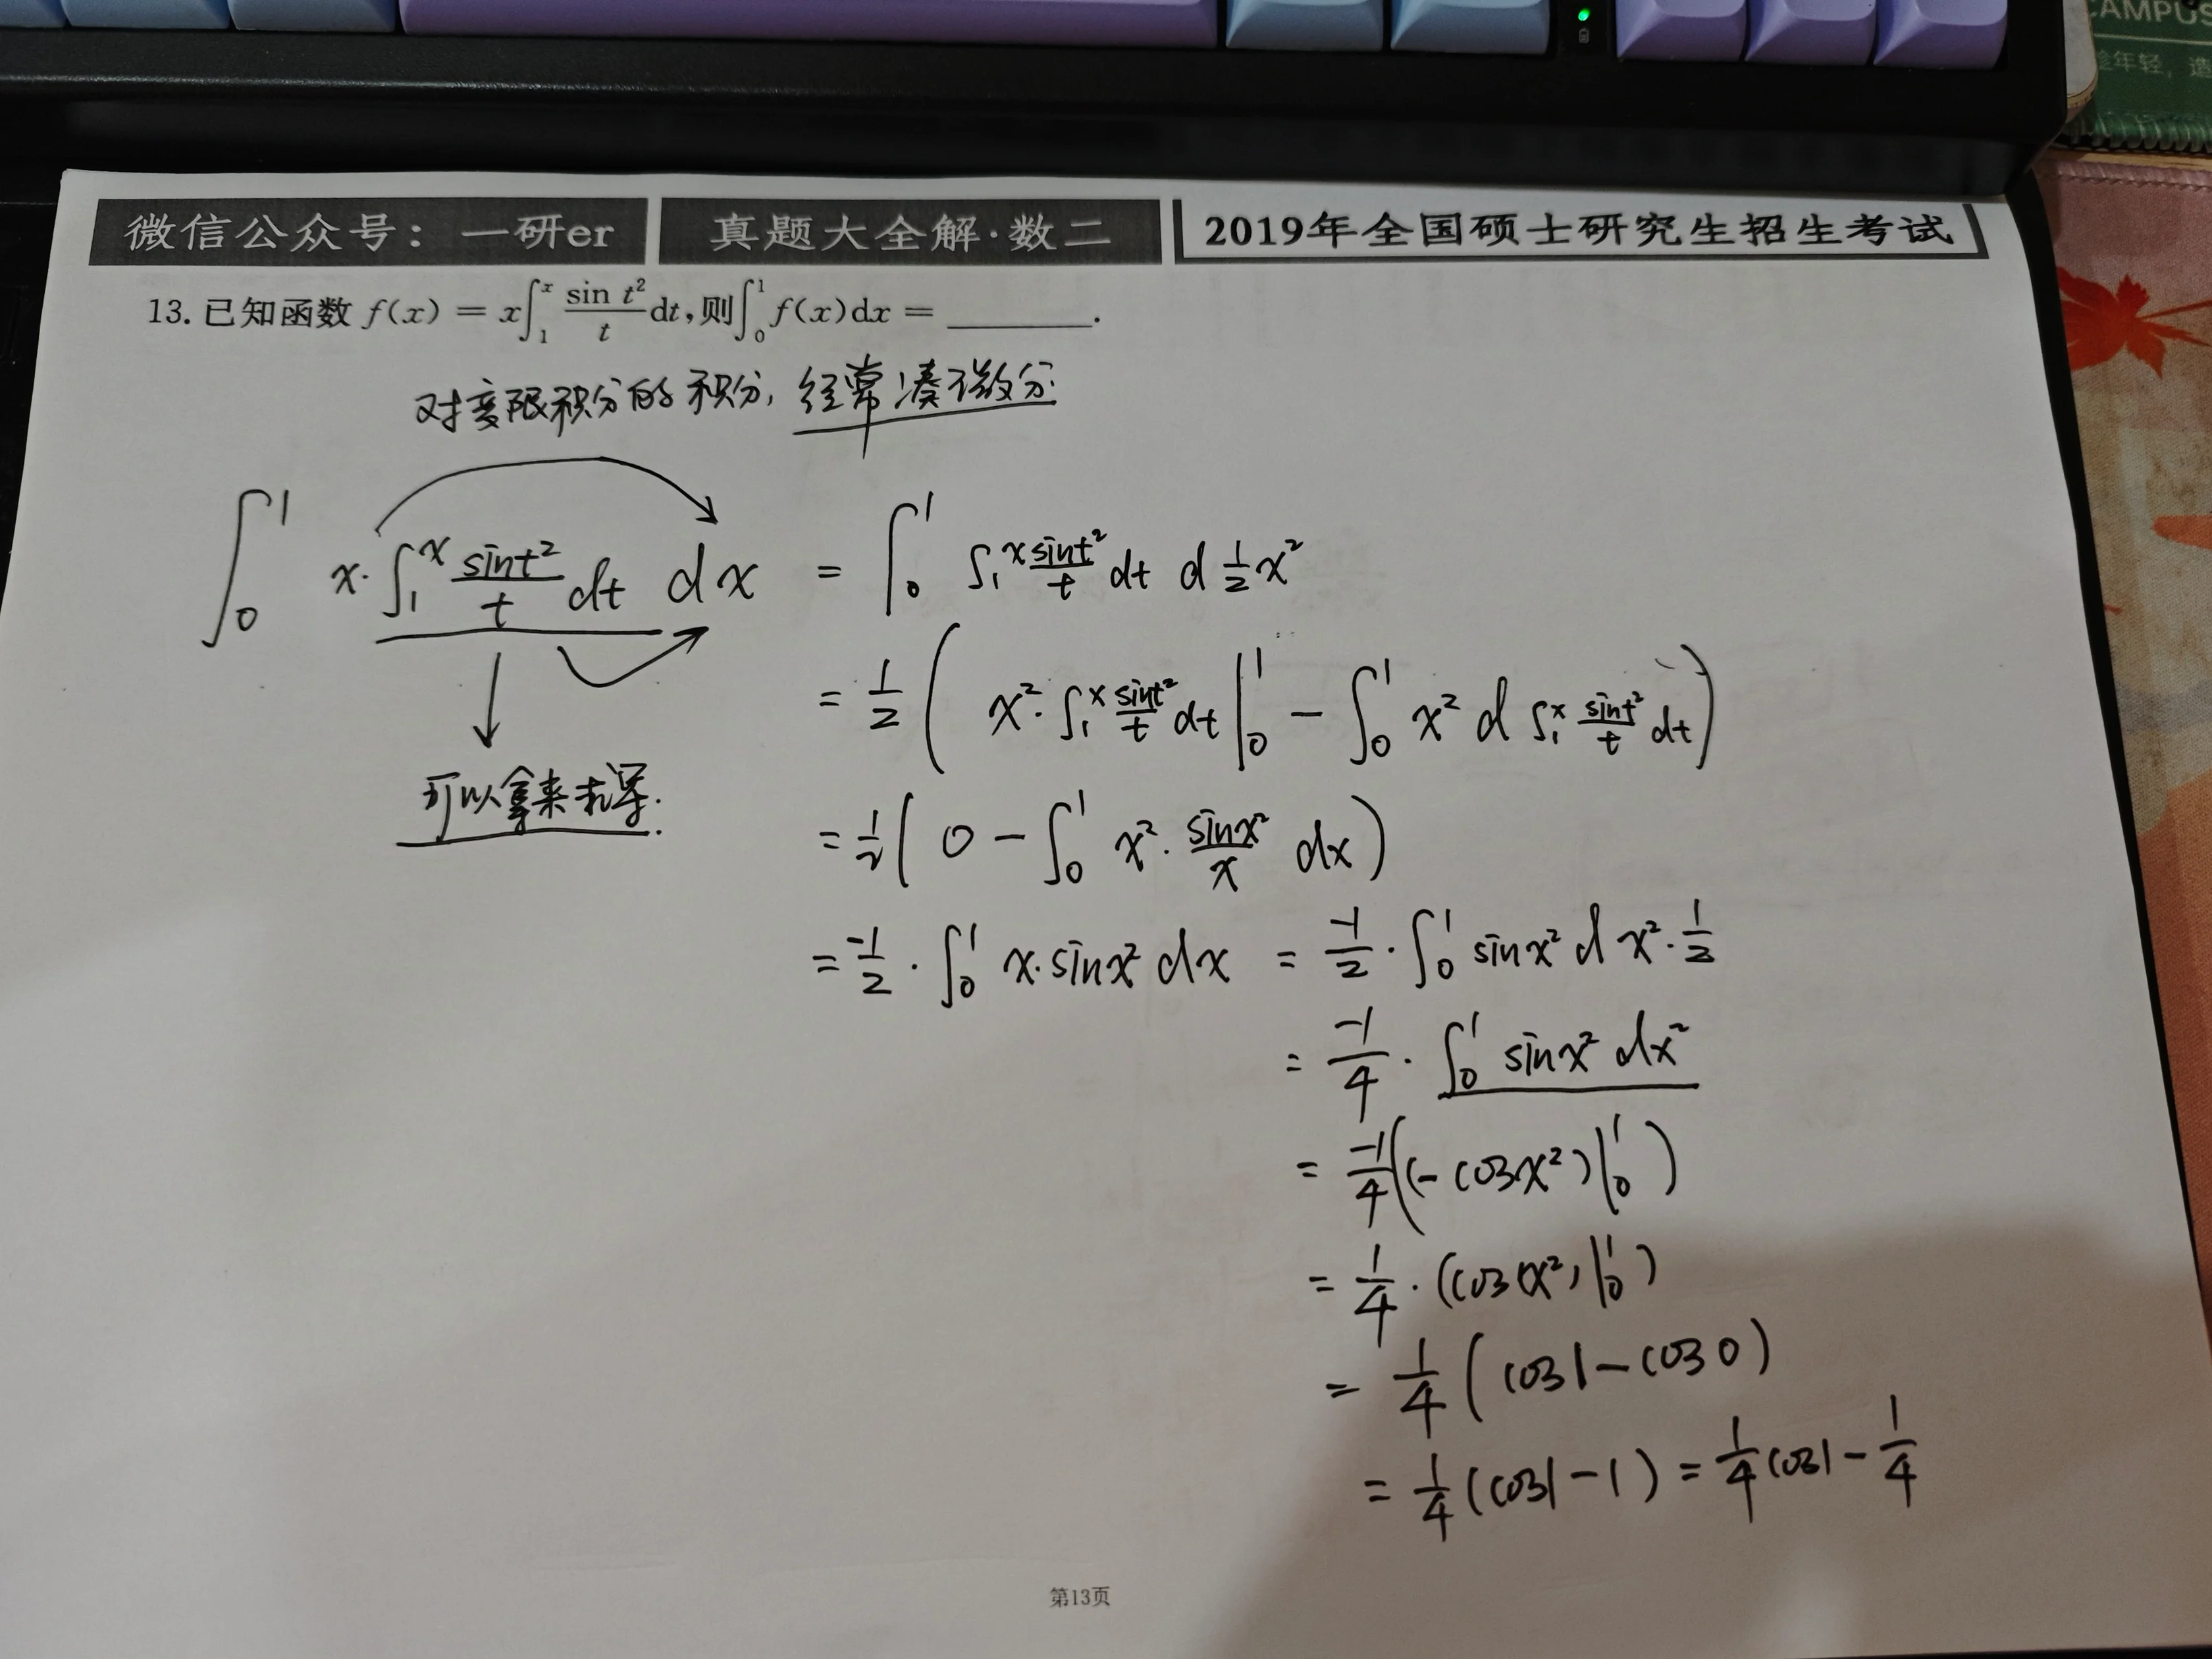 CAMPUS
年轻，造
微信公众号：一研er 真题大全解·数二 2019年全国硕士研究生招生考试
13. 已知函数 f(x) = x∫₁ˣ (sin t²)/t dt,则∫₀¹ f(x)dx = ________.
对变限积分的积分, 经常凑微分
∫₀¹ x·∫₁ˣ (sint²)/t dt dx = ∫₀¹ ∫₁ˣ (sint²)/t dt d ½x²
= ½ ( x²·∫₁ˣ (sint²)/t dt |₀¹ − ∫₀¹ x² d ∫₁ˣ (sint²)/t dt )
可以拿来求导.
= ½ ( 0 − ∫₀¹ x²· (sinx²)/x dx )
= -1/2 · ∫₀¹ x·sinx² dx = -1/2 · ∫₀¹ sinx² d x²·½
= -1/4 · ∫₀¹ sinx² dx²
= -1/4 ((-cosx²)|₀¹ )
= 1/4 · (cos(x²)|₀¹ )
= 1/4 ( cos1 − cos0 )
= 1/4 (cos1 − 1) = 1/4 cos1 − 1/4
第13页